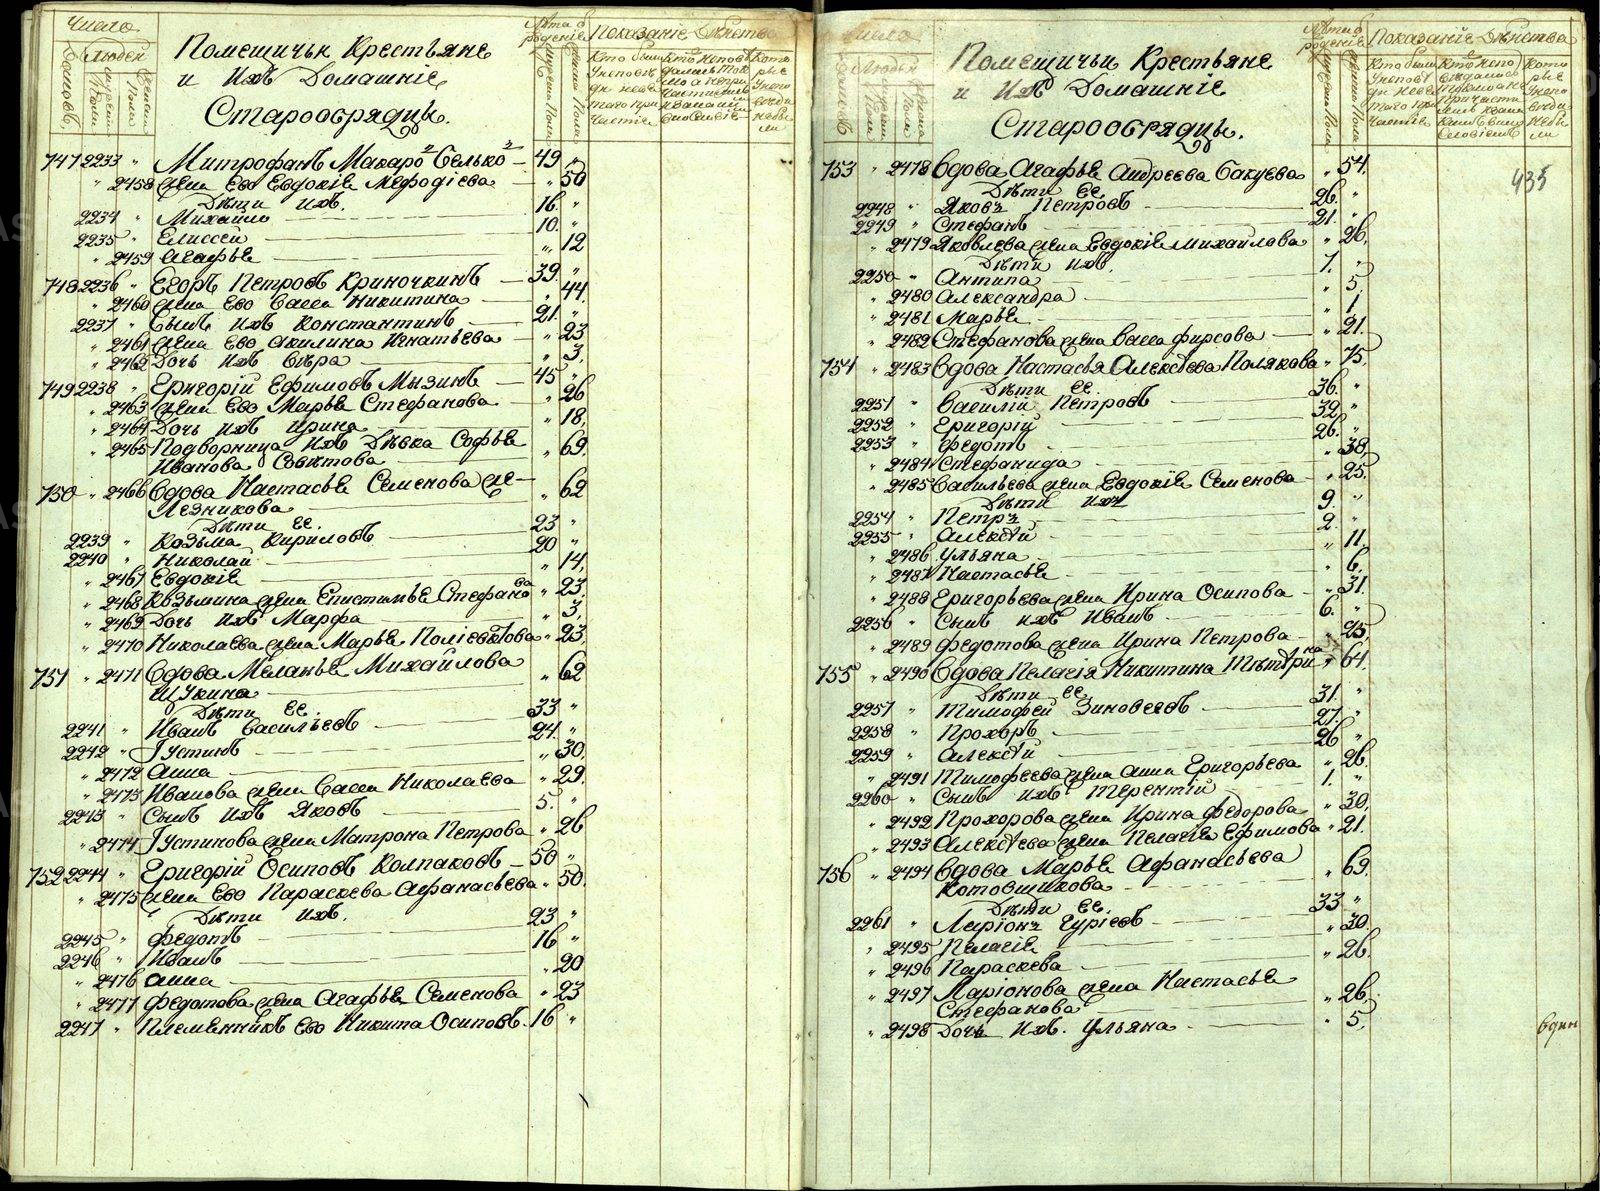 Число
Людей
Помещичьи Крестьяне
и Ихъ Домашніе
Старообрядцы.
Лѣта от рожденія
Показаніе Дѣйства
747 2233 " Митрофанъ Макаро
" 2458 жена Его Евдокія Мефодіева — " 50
Дѣти Ихъ.
2234 " Михайло — 16. "
2235 " Елиссей — 10. "
" 2459 Агафья — " 12
748 2236 " Егоръ Петровъ Криночкинъ — 39. "
" 2460 жена Его Васса Никитина — " 44.
2237 " Сынъ Ихъ Константинъ — 21. "
" 2461 жена Его Акилина Игнатьева — " 23
" 2462 Дочь Ихъ Вѣра — " 3.
749 2238 " Григорій Ефимовъ Мызинъ — 45 "
" 2463 жена Его Марья Стефанова — " 26
" 2464 Дочь Ихъ Ирина — " 18.
" 2465 Подворница Ихъ Дѣвка Софья
Иванова Совѣтова — " 69.
750 " 2466 Вдова Настасья Семенова
" 62
Дѣти Ее.
2239 " Козьма Кириловъ — 23 "
2240 " Николай — 20 "
" 2467 Евдокія — " 14.
" 2468 Козьмина жена Епистимья Стефанова " 23.
" 2469 Дочь Ихъ Марфа — " 3.
" 2470 Николаева жена Марья Поліевктова " 23.
751 " 2471 Вдова Меланья Михайлова
Щукина — " 62
Дѣти Ее.
2241 " Иванъ Васильевъ — 33 "
2242 " Іустинъ — 24. "
" 2472 Анна — " 30.
" 2473 Иванова жена Васса Николаева " 29.
2243 " Сынъ Ихъ Яковъ — 5. "
" 2474 Іустинова жена Матрона Петрова " 26
752 2244 " Григорій Осиповъ Колпаковъ — 50 "
" 2475 жена Его Параскева Афанасьева " 50.
Дѣти Ихъ.
2245 " Федотъ — 23 "
2246 " Иванъ — 16 "
" 2476 Анна — " 20
" 2477 Федотова жена Агафья Семенова " 23
2247 " Племянникъ Его Никита Осиповъ 16 "
Число
Людей
Помещичьи Крестьяне
и Ихъ Домашніе
Старообрядцы.
Показаніе Дѣйства
435
753 " 2478 Вдова Агафья Андреева Бакуева " 54.
Дѣти Ее
2248 " Яковъ Петровъ — 26. "
2249 " Стефанъ — 21. "
" 2479 Яковлева жена Евдокія Михайлова " 26.
Дѣти Ихъ.
2250 " Антипа — 7. "
" 2480 Александра — " 5
" 2481 Марья — " 1
" 2482 Стефанова жена Васса Фирсова — " 21.
754 " 2483 Вдова Настасья Алексѣева Полякова " 75.
Дѣти Ее.
2251 " Василій Петровъ — 36. "
2252 " Григорій — 32. "
2253 " Федотъ — 26. "
" 2484 Стефанида — " 38.
" 2485 Васильева жена Евдокія Семенова " 25.
Дѣти Ихъ
2254 " Петръ — 9. "
2255 " Алексѣй — 2. "
" 2486 Ульяна — " 11.
" 2487 Настасья — " 6.
" 2488 Григорьева жена Ирина Осипова — " 31.
2256 " Сынъ Ихъ Иванъ — 6. "
" 2489 Федотова жена Ирина Петрова — " 25.
755 " 2490 Вдова Пелагія Никитина
" 64.
Дѣти Ее
2257 " Тимофей Зиновеевъ — 31. "
2258 " Прохоръ — 27. "
2259 " Алексѣй — 26 "
" 2491 Тимофеева жена Анна Григорьева " 26.
2260 " Сынъ Ихъ Терентій 1. "
" 2492 Прохорова жена Ирина Федорова " 30.
" 2493 Алексѣева жена Пелагія Ефимова " 21.
756 " 2494 Вдова Марья Афанасьева
Котовщикова — " 69.
Дѣти Ее.
2261 " Ларіонъ Гуріевъ — 33 "
" 2495 Пелагія — " 30.
" 2496 Параскева — " 26.
" 2497 Ларіонова жена Настасья
Стефанова — " 26.
" 2498 Дочь Ихъ. Ульяна — " 5.